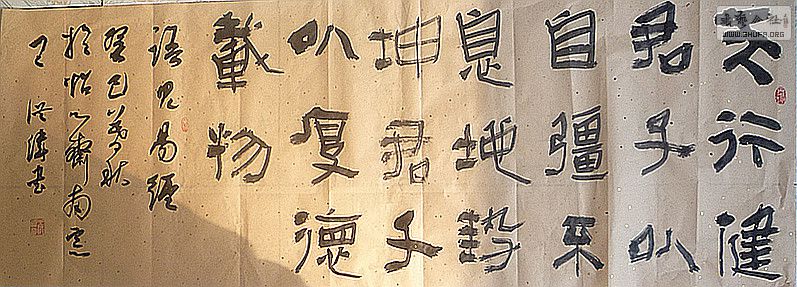 天行健
君子以
自彊不
息地勢
坤君子
以厚德
載物
語見易經
癸巳秋
於怡心齋南窗
書
WWW.SHUFA.ORG